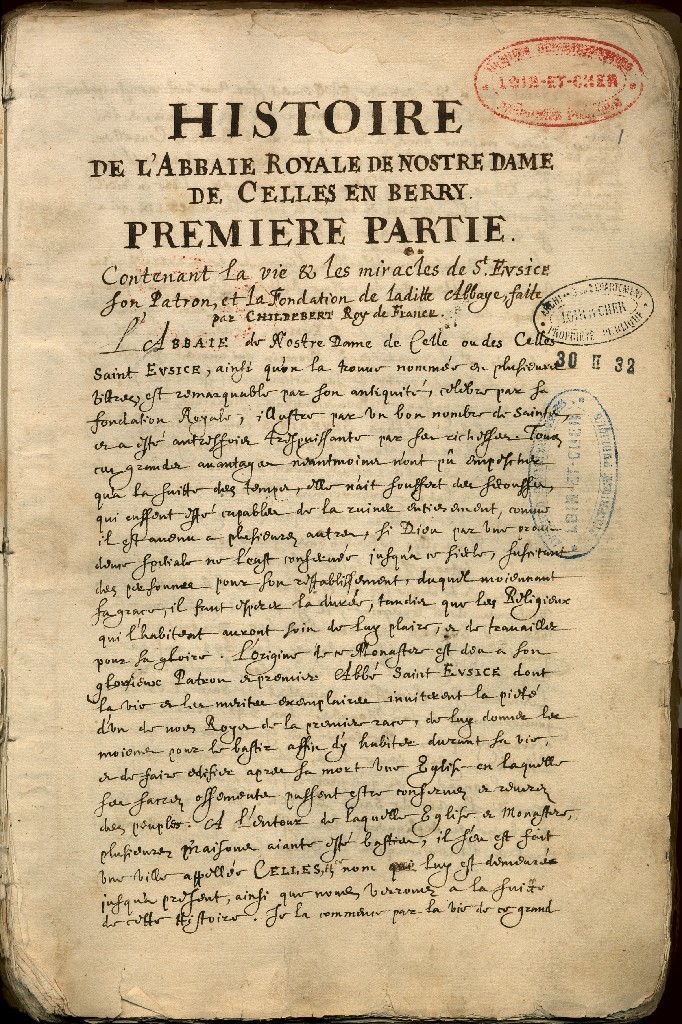 LOIR-ET-CHER
1
HISTOIRE
DE L'ABBAIE ROYALE DE NOSTRE DAME
DE CELLES EN BERRY.
PREMIERE PARTIE.
Contenant la vie & les miracles de St. EVSICE
son Patron, et la Fondation de laditte Abbaye, faite
par CHILDEBERT Roy de France.
L'ABBAIE de Nostre Dame de Celle ou des Celles
Saint EVSICE, ainsi qu'on la trouue nommée en plusieurs
tiltres, est remarquable par son antiquité, celebre par sa
fondation Royale, illustre par vn bon nombre de Saints,
et a esté autresfois trespuissante par ses richesses. Tous
ces grands auantages neantmoins n'ont pû empescher
qu'a la suitte des temps, elle n'ait souffert des secousses,
qui eussent esté capables de la ruiner entierement, comme
il est auenu a plusieurs autres, si Dieu par vne proui
dence speciale ne l'eust conseruée jusqu'a ce siecle, suscitant
des personnes pour son restablissement, duquel moiennant
sa grace, il faut esperer la durée, tandis que les Religieux
qui l'habitent auront soin de luy plaire, et de trauailler
pour sa gloire. L'origine de ce Monastere est deu a son
glorieux Patron et premier Abbé Saint EVSICE dont
la vie et les merites exemplaires inuiterent la pieté
d'vn de nos Roys de la premiere race, de luy donner les
moiens pour le bastir affin d'y habiter durant sa vie,
et de faire edifier apres sa mort vne Eglise en laquelle
ses sacrez ossements pussent estre conseruez et reuerez
des peuples. A l'entour de laquelle Eglise et Monastere,
plusieurs maisons aiants esté basties, il s'en est fait
vne ville appellée CELLES, nom qui luy est demeuré
jusqu'a present, ainsi que nous verrons a la suitte
de cette Histoire. Je la commence par la vie de ce grand
LOIR-&-CHER
PROPRIÉTÉ PUBLIQUE
30 II 32
LOIR-ET-CHER